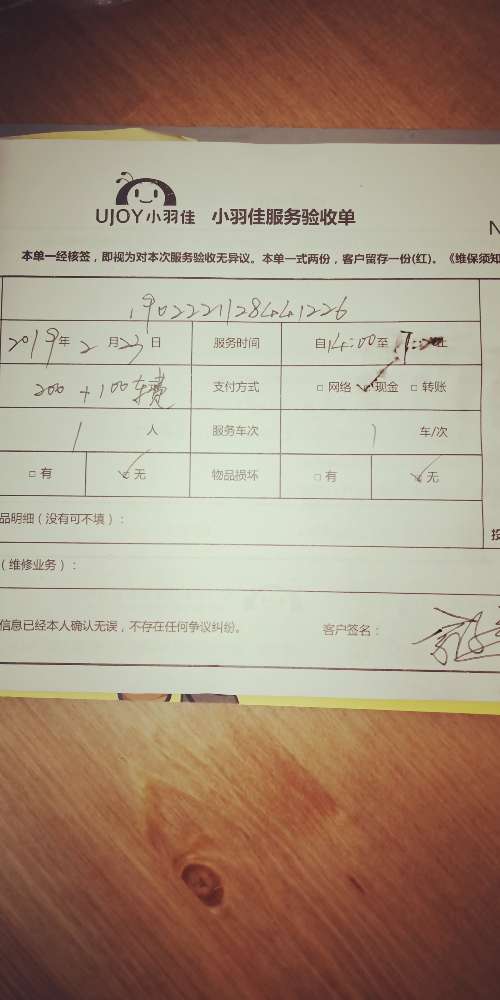 UJOY小羽佳 小羽佳服务验收单
N
本单一经核签，即视为对本次服务验收无异议。本单一式两份，客户留存一份(红)。《维保须知
190222112844 1226
2019年2月23日 服务时间 自14:00至
200+100车费 支付方式 □网络 ☑现金 □转账
1人 服务车次 1车/次
□有 ☑无 物品损坏 □有 ☑无
品明细（没有可不填）：
（维修业务）：
信息已经本人确认无误，不存在任何争议纠纷。 客户签名：